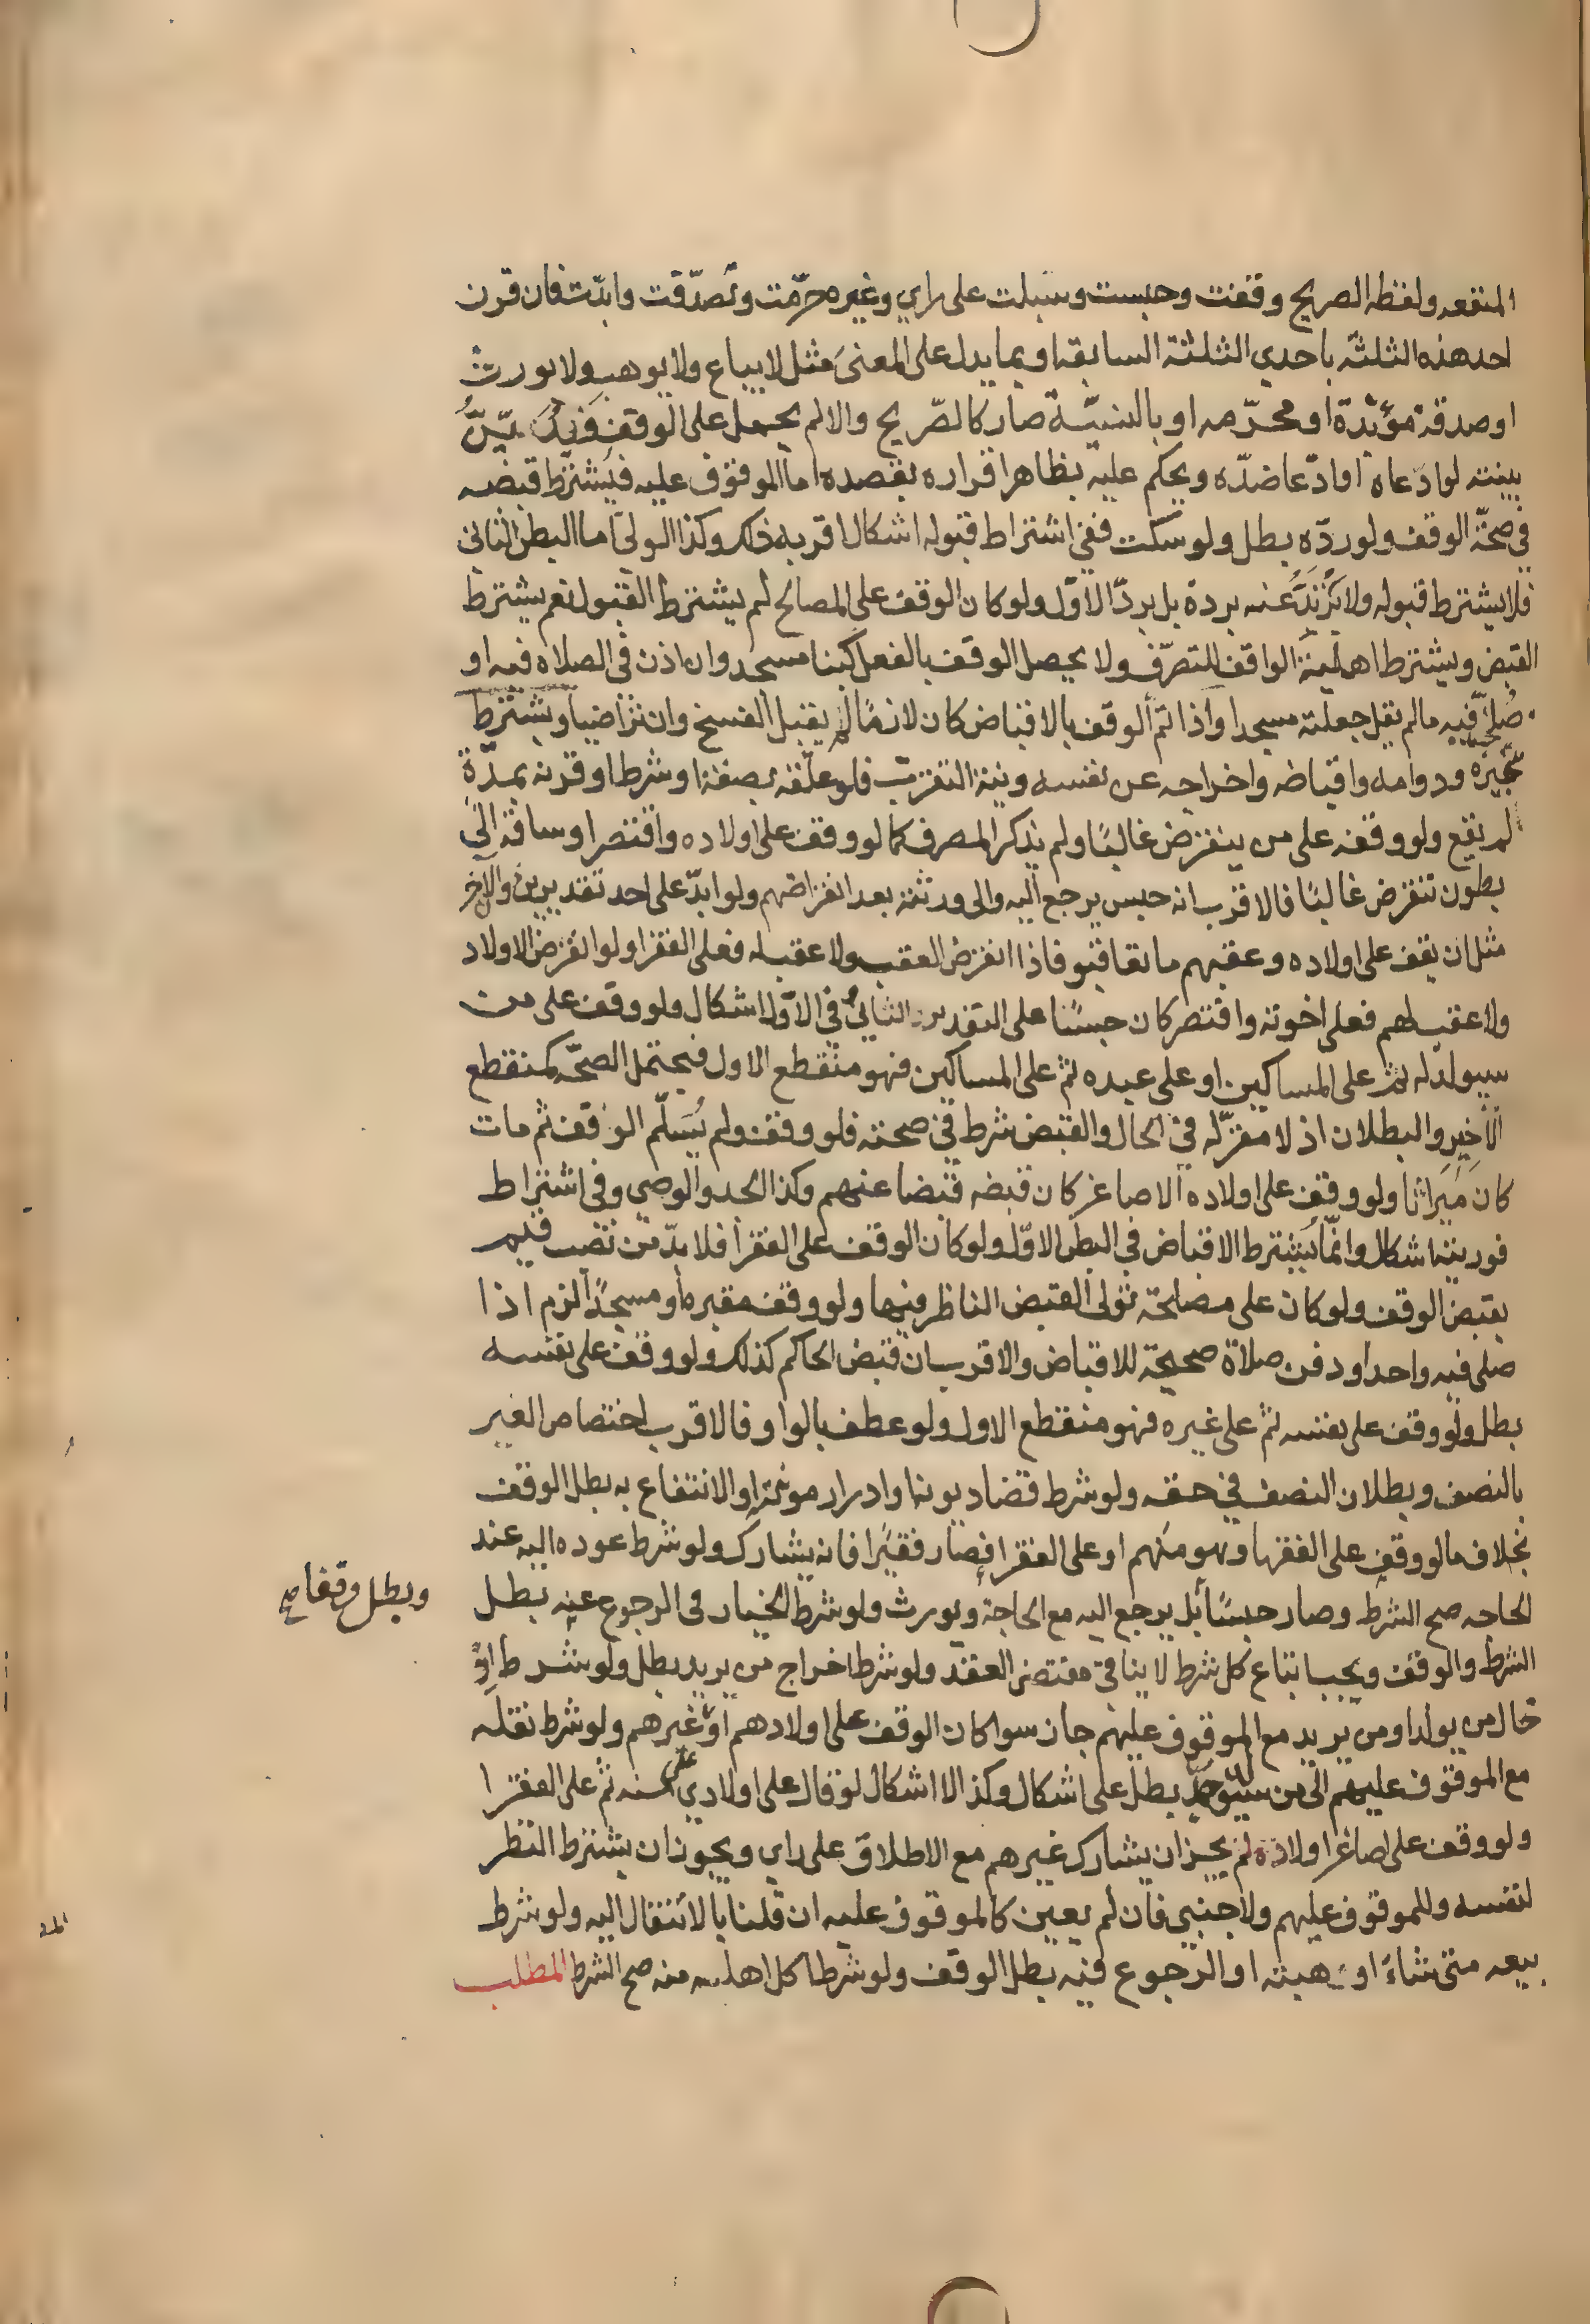 المنفعه ولفظه الصريح وقفت وحبست وسبلت على راي وغيره حرّمت وتصدّقت وابّدت فان قرن
احد هذه الثلثة باحدي الثلثة السابقه او بما يدل على المعنى مثل لا يباع ولا يوهب ولا يورث
او صدقة مؤبّدة او محرّمه او بالنيّة صار كالصّريح والا لم يحمل على الوقف
بينته لو ادعاه او ادّعا ضدّه ويحكم عليه بظاهر اقراره بقصده اما الموقوف عليه فيشترط قبضه
في صحّة الوقف ولو ردّه بطل ولو سكت ففي اشتراط قبوله اشكال اقربه ذلك وكذا الولي اما البطن الثاني
فلا يشترط قبوله ولا يرتدّ عنه برده بل بردّ الاوّل ولو كان الوقف على المصالح لم يشترط القبول نعم يشترط
القبض ويشترط اهلية الواقف للتصرّف ولا يحصل الوقف بالفعل كبنا مسجد وان اذن في الصلاه فيه او
صُلّي فيه ما لم يقل جعلته مسجدا واذا تمّ الوقف بالاقباض كان لازمًا لا يقبل الفسخ وان تراضيا ويشترط
تنجيزه ودوامه واقباضه واخراجه عن نفسه ونية التقرّب فلو علّقه بصفة او شرط او قرنه بمدّة
لم يقع ولو وقفه على من ينقرض غالبًا ولم يذكر المصرف كما لو وقف على اولاده واقتصر او ساقه الى
بطون تنقرض غالبًا فالاقرب انه حبس يرجع اليه والى ورثته بعد انقراضهم ولو ابّد على احد تقديرين والاخر
مثل ان يقف على اولاده وعقبهم ما تعاقبو فاذا انقرض العقب ولا عقب له فعلى الفقرا ولو انقرض الاولاد
ولا عقب لهم فعلى اخوته واقتصر كان حبسًا على التقدير الثاني وفي الاوّل اشكال ولو وقف على من
سيولد له ثم على المساكين او على عبده ثم على المساكين فهو منقطع الاول فيحتمل الصحّة كمنقطع
الاخير والبطلان اذ لا مقرّ له في الحال والقبض شرط في صحته فلو وقف ولم يُسَلّم الوقف ثم مات
كان ميراثا ولو وقف على اولاده الاصاغر كان قبضه قبضا عنهم وكذا الجد والوصي وفي اشتراط
فوريته اشكال وانّما يُشترط الاقباض في البطن الاوّل ولو كان الوقف على الفقرا فلا بدّ من نصب قيم
يقبض الوقف ولو كان على مصلحة تولى القبض الناظر فيها ولو وقف مقبره او مسجدًا لزم اذا
صلى فيه واحد او دفن صلاة صحيحة للاقباض والاقرب ان قبض الحاكم كذلك ولو وقف على نفسه
بطل ولو وقف على نفسه ثم على غيره فهو منقطع الاول ولو عطف بالواو فالاقرب اختصاص الغير
بالنصف وبطلان النصف في حقه ولو شرط قضا ديونه او ادرار مونته او الانتفاع به بطل الوقف
بخلاف ما لو وقف على الفقها وهو منهم او على الفقرا فصار فقيرًا فانه يشارك ولو شرط عوده اليه عند
الحاجه صح الشرط وصار حبسًا بل يرجع اليه مع الحاجة ويورث ولو شرط الخيار في الرجوع عنه بطل
وبطل وقفا صح
الشرط والوقف ويجب اتباع كل شرط لا ينافي مقتضى العقد ولو شرط اخراج من يريد بطل ولو شرط
خال من يولد او من يريد مع الموقوف عليهم جاز سوا كان الوقف على اولادهم او غيرهم ولو شرط نقله
مع الموقوف عليهم الى من سيوجد بطل على اشكال وكذا الاشكال لو قال على اولادي سنه ثم على الفقرا
ولو وقف على اصاغر اولاده لم يجز ان يشارك غيرهم مع الاطلاق على راي ويجوز ان يشترط النظر
لنفسه وللموقوف عليهم ولاجنبي فان لم يعين كالموقوف عليه ان قلنا بالانتقال اليه ولو شرط
بيعه متى شاءَ او هبته او الرجوع فيه بطل الوقف ولو شرط اكل اهله منه صح الشرط المطلب